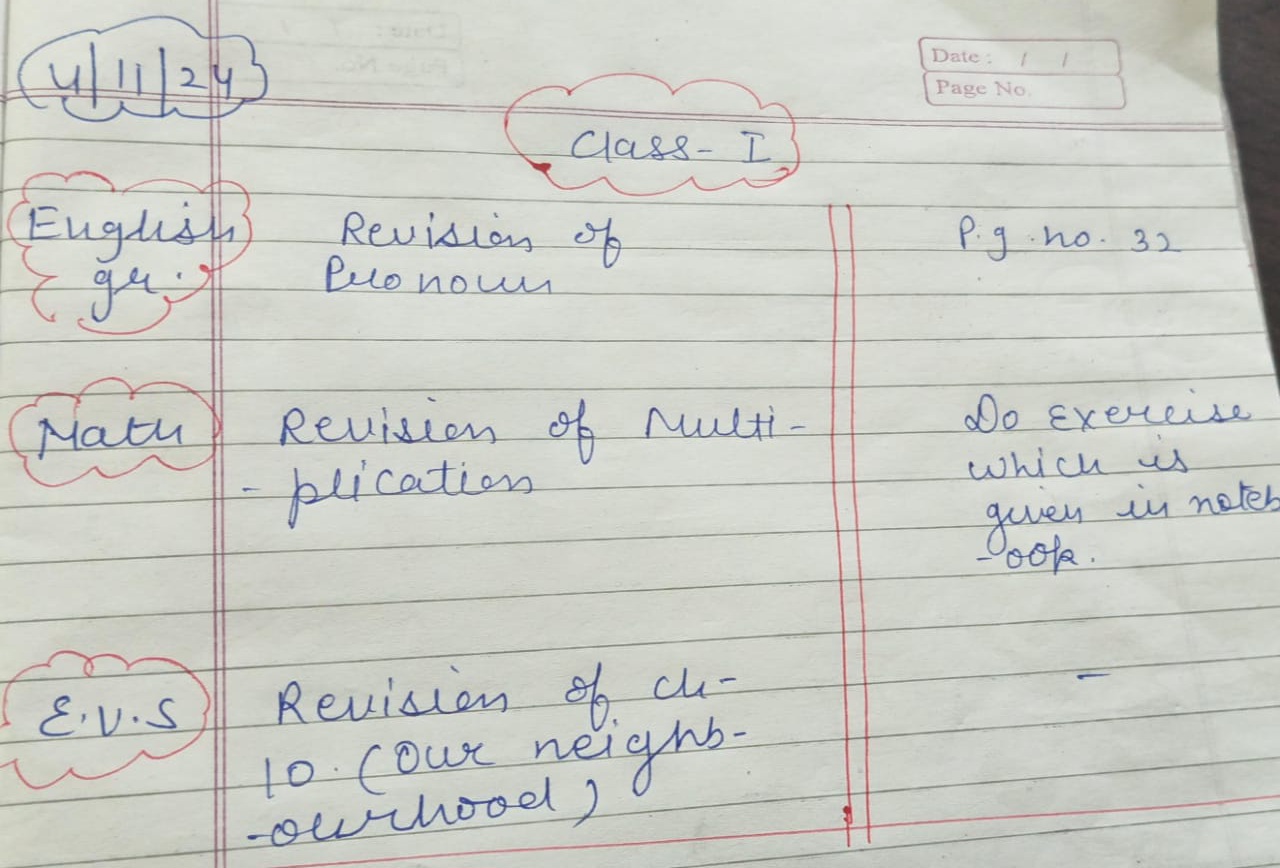 4/11/24
Date : / /
Page No.
Class- I
English
gr.
Revision of
Pronoun
P.g.no. 32
Math
Revision of Multi-
- plication
Do Exercise
which is
given in noteb
-ook.
E.V.S
Revision of ch-
10. (Our neighb-
-ourhood)
-